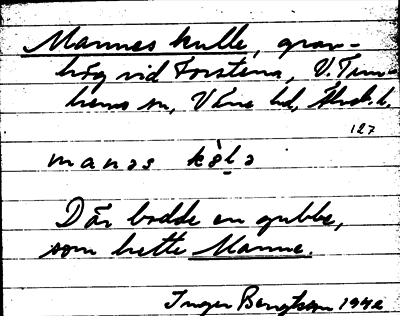 Mannes kulle, grav-
hög vid Forstena, V. Tun-
hems sn, Väne hd, Älvsb. l.
127
manəs kòlə
Där bodde en gubbe,
som hette Manne.
Inger Bengtsson 1942